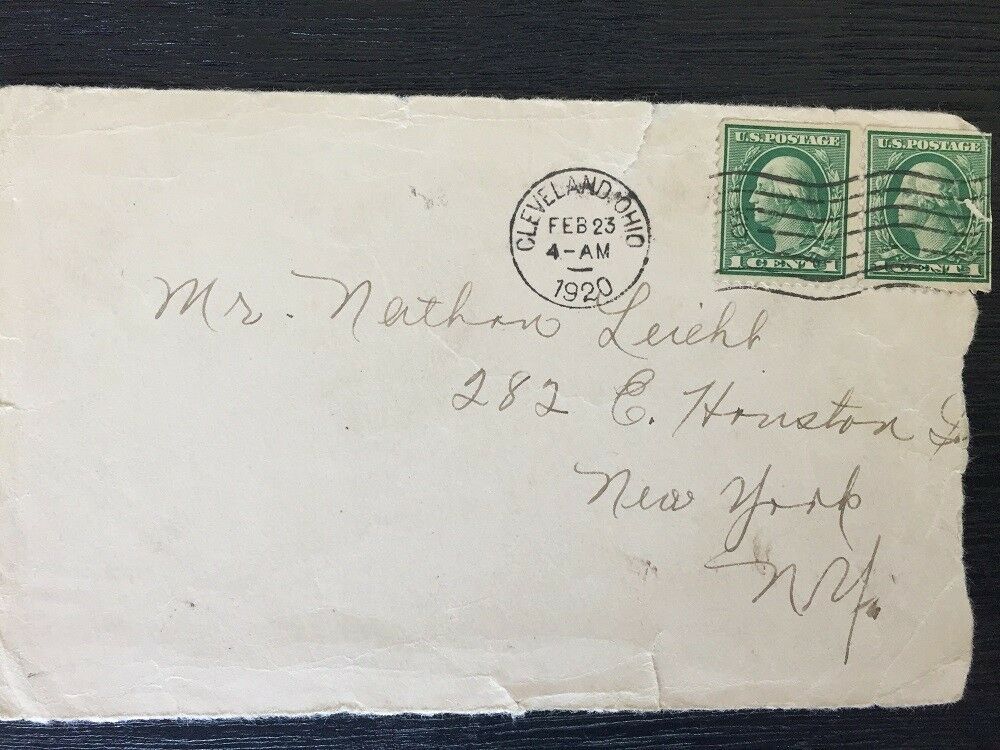 U.S. POSTAGE
1 CENT 1
U.S. POSTAGE
1 CENT 1
CLEVELAND, OHIO
FEB 23
4-AM
1920
Mr. Nathan
282 E. Houston
New York
N.Y.